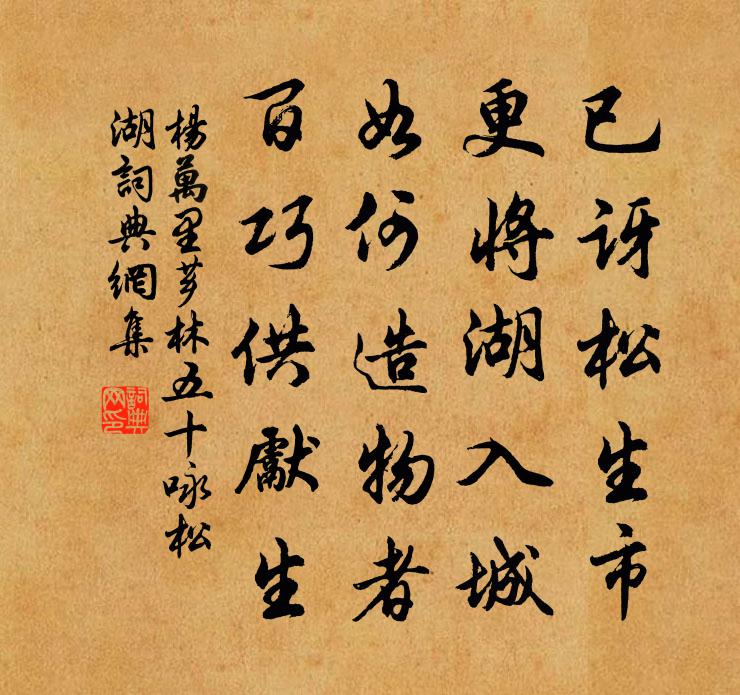 已訝松生市
更將湖入城
如何造物者
百巧供獻生
楊萬里芗林五十咏松
湖詞典網集
詞典
网印